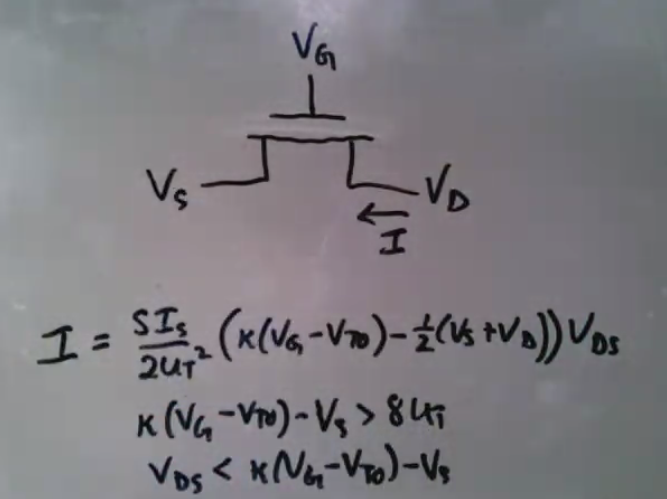 V_G
V_S V_D
I
I = SI_s/2U_T² (κ(V_G - V_T0) - ½(V_S + V_D)) V_DS
κ(V_G - V_T0) - V_S > 8U_T
V_DS < κ(V_G - V_T0) - V_S